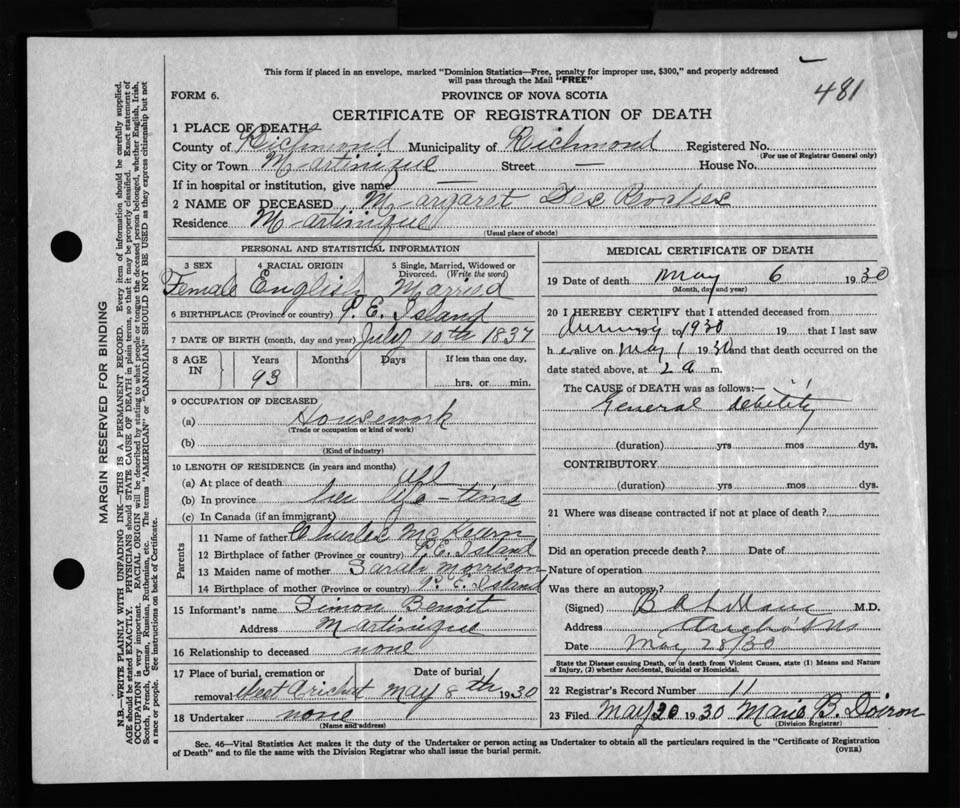 This form if placed in an envelope, marked "Dominion Statistics—Free, penalty for improper use, $300," and properly addressed
will pass through the Mail "FREE"
481
FORM 6.
PROVINCE OF NOVA SCOTIA
CERTIFICATE OF REGISTRATION OF DEATH
1 PLACE OF DEATH
County of Richmond Municipality of Richmond Registered No.
(For use of Registrar General only)
City or Town Martinique Street — House No.
If in hospital or institution, give name —
2 NAME OF DECEASED Margaret Des Roches
Residence Martinique
(Usual place of abode)
PERSONAL AND STATISTICAL INFORMATION
3 SEX 4 RACIAL ORIGIN 5 Single, Married, Widowed or
Divorced. (Write the word)
Female English Married
6 BIRTHPLACE (Province or country) P. E. Island
7 DATE OF BIRTH (month, day and year) July 10th 1837
8 AGE IN Years Months Days If less than one day,
93 hrs. or min.
9 OCCUPATION OF DECEASED
(a) Housework
(Trade or occupation or kind of work)
(b)
(Kind of industry)
10 LENGTH OF RESIDENCE (in years and months)
(a) At place of death
(b) In province her life-time
(c) In Canada (if an immigrant)
Parents
11 Name of father Charles
12 Birthplace of father (Province or country) P.E. Island
13 Maiden name of mother Sarah Morrison
14 Birthplace of mother (Province or country) P. E. Island
15 Informant's name Simon Benoit
Address Martinique
16 Relationship to deceased none
17 Place of burial, cremation or Date of burial
removal West Arichat May 8th 1930
18 Undertaker none
(Name and address)
MEDICAL CERTIFICATE OF DEATH
19 Date of death May 6 1930
(Month, day and year)
20 I HEREBY CERTIFY that I attended deceased from
to 1930 19 that I last saw
her alive on May 1 1930 and that death occurred on the
date stated above, at 2 a m.
The CAUSE of DEATH was as follows:—
General debility
(duration) yrs mos dys.
CONTRIBUTORY
(duration) yrs mos dys.
21 Where was disease contracted if not at place of death?
Did an operation precede death? Date of
Nature of operation
Was there an autopsy?
(Signed) M.D.
Address Arichat NS
Date May 28/30
State the Disease causing Death, or in death from Violent Causes, state (1) Means and Nature
of Injury, (2) whether Accidental, Suicidal or Homicidal.
22 Registrar's Record Number 11
23 Filed May 20 1930 Marie B. Doiron
(Division Registrar)
Sec. 46—Vital Statistics Act makes it the duty of the Undertaker or person acting as Undertaker to obtain all the particulars required in the "Certificate of Registration
of Death" and to file the same with the Division Registrar who shall issue the burial permit.
(OVER)
MARGIN RESERVED FOR BINDING
N.B.—WRITE PLAINLY WITH UNFADING INK—THIS IS A PERMANENT RECORD. Every item of information should be carefully supplied.
AGE should be stated EXACTLY. PHYSICIANS should STATE CAUSE OF DEATH in plain terms, so that it may be properly classified. Exact statement of
OCCUPATION is very important. RACIAL ORIGIN will be described by stating to what people or tongue the deceased person belonged, whether English, Irish,
Scotch, French, German, Russian, Ruthenian, etc. The terms "AMERICAN" or "CANADIAN" SHOULD NOT BE USED as they express citizenship but not
a race or people. See instructions on back of Certificate.